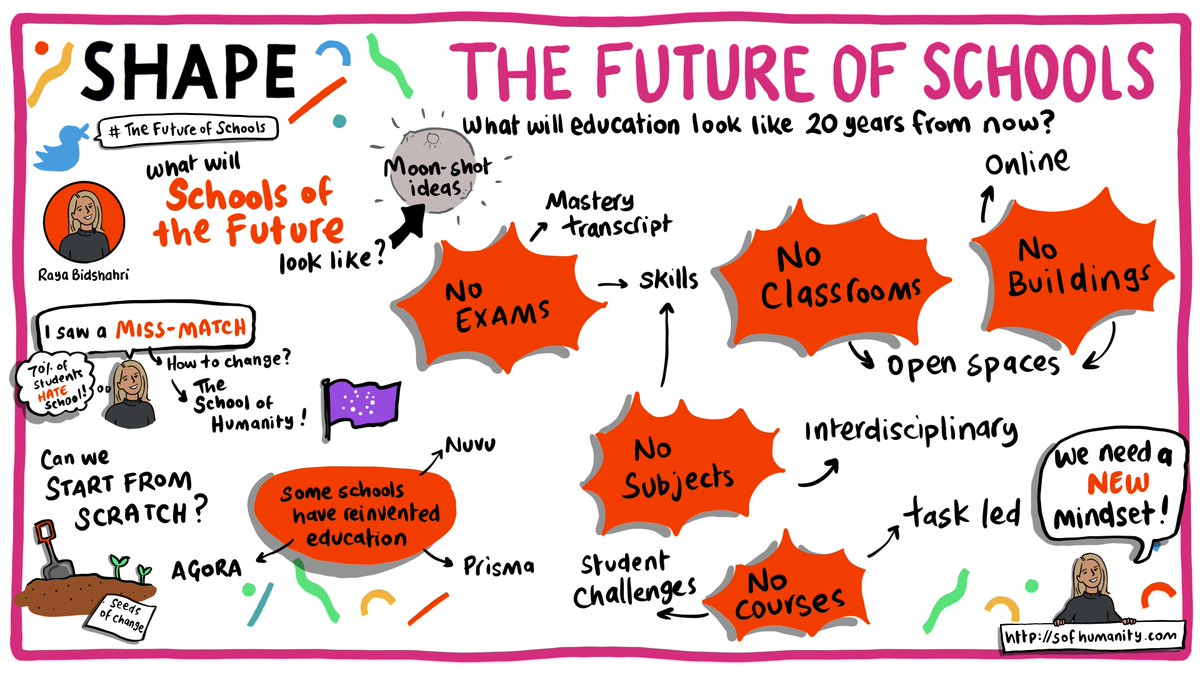 SHAPE
# The Future of Schools
what will
Schools of
the Future
look like?
Raya Bidshahri
Moon-shot
ideas
THE FUTURE OF SCHOOLS
What will education look like 20 years from now?
Mastery
transcript
No
EXAMS
Skills
No
Classrooms
Online
No
Buildings
Open spaces
I saw a MISS-MATCH
70% of
students
HATE
school!
How to change?
The
School of
Humanity!
Can we
START FROM
SCRATCH?
seeds
of change
Some schools
have reinvented
education
Nuvu
AGORA
Prisma
No
Subjects
Interdisciplinary
No
courses
task led
Student
Challenges
We need a
NEW
mindset!
http://sofhumanity.com